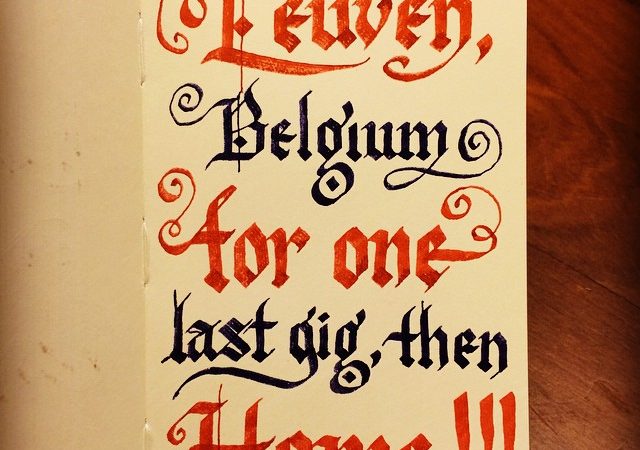 Leuven,
Belgium
for one
last gig, then
Home!!!